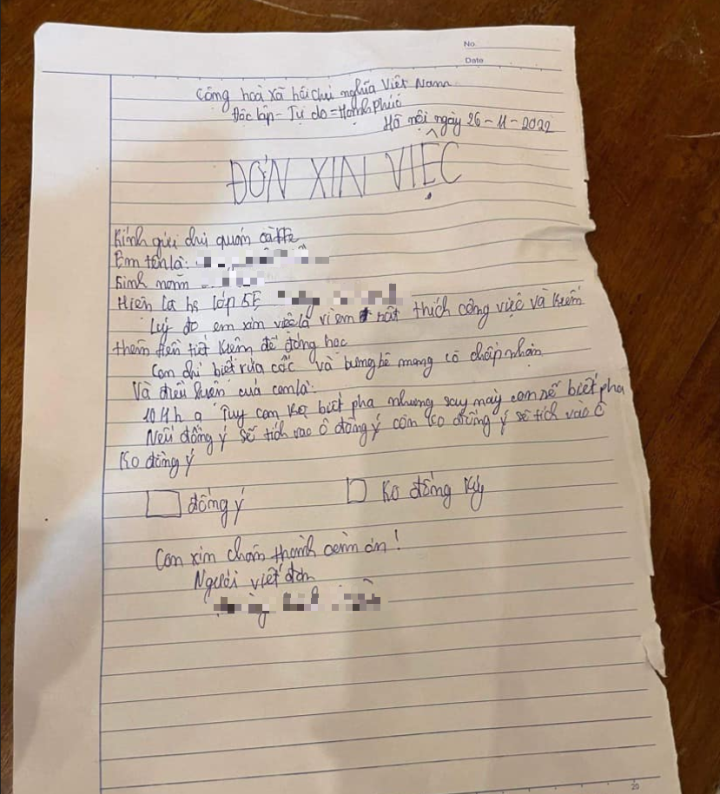 No
Date
Cộng hoà xã hôi chủ nghĩa Việt Nam
Độc lập - Tự do = Hạnh Phúc
Hà nội ngày 26-11-2022
ĐƠN XIN VIỆC
Kính gửi chủ quán cà
Em tên là:
Sinh năm
Hiện là hs lớp 5E
Lý do em xin việc là vì em rất thích công việc và kiếm
thêm tiền tiết kiệm để đóng học
Con chỉ biết rửa cốc và bưng bê mong cô chấp nhận
Và điều kiện của con là:
10 h ạ Tuy con ko biết pha nhưng say này con sẽ biết pha
Nếu đồng ý sẽ tích vào ô đồng ý còn ko đồng ý sẽ tích vào ô
Ko đồng ý
đồng ý
Ko đồng ý
Con xin chân thành cảm ơn!
Người viết đơn
20